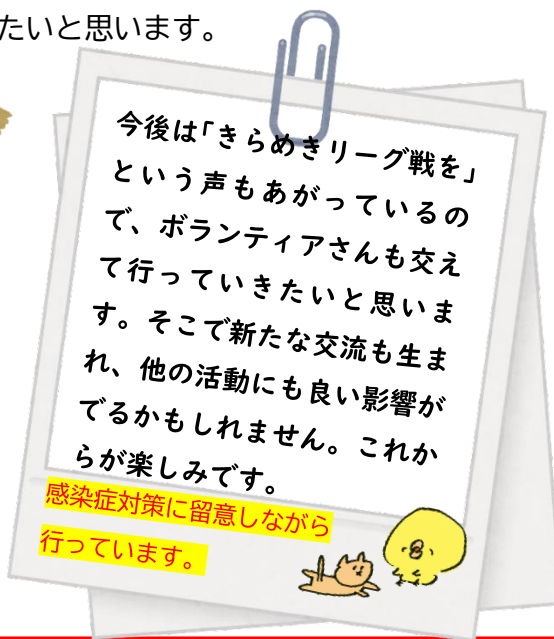 たいと思います。
今後は「きらめきリーグ戦を」
という声もあがっているの
で、ボランティアさんも交え
て行っていきたいと思いま
す。そこで新たな交流も生ま
れ、他の活動にも良い影響が
でるかもしれません。これか
らが楽しみです。
感染症対策に留意しながら
行っています。